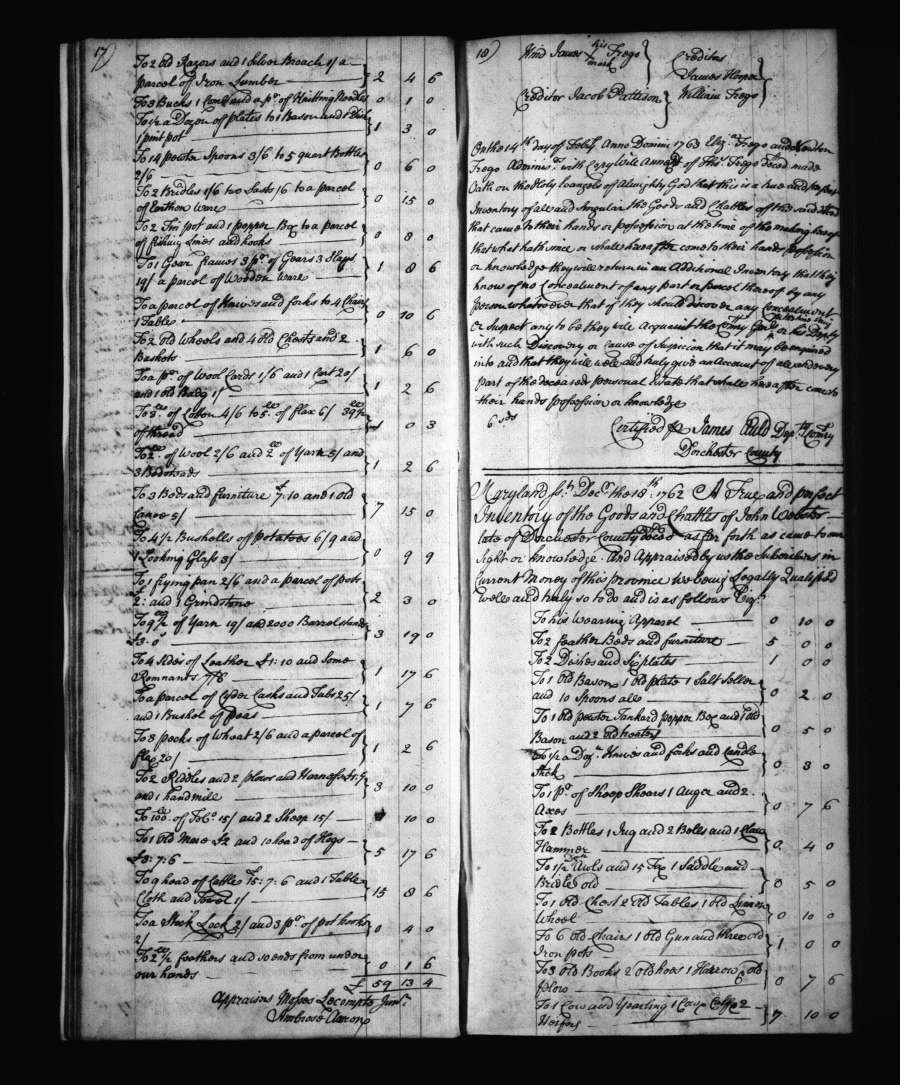 17)
To 2 old Razors and 1 Silver Broach 1/ a
parcel of Iron Lumber 2 4 6
To 3 Bucks 1 and a pr. of Knitting Needles 0 1 0
To 1/2 a Dozen of plates to 1 Bason and 1 Dish
1 pint pot 1 3 0
To 14 pewter Spoons 3/6 to 5 quart Bottles
2/6 0 6 0
To 2 Bridles 1/6 two /6 to a parcel
of Earthen Ware 0 15 0
To 2 Tin pot and 1 pepper Box to a parcel
of fishing Lines and hooks 0 8 0
To 1 Gear frames 3 pr. of Gears 3 Slays
19/ a parcel of Wooden Ware 1 8 6
To a parcel of Knives and forks to 4 Chairs
1 Table 0 10 6
To 2 old Wheels and 4 old Chests and 2
Baskets 1 6 0
To a pr. of Wool Cards 1/6 and 1 Cart 20/
and 1 old 1/ 1 2 6
To 3 of 4/6 to 5 of flax 6/
of thread 0 3
To 2 of Wool 2/6 and 2 of Yarn 5/ and
3 Bedsteads 1 2 6
To 3 Beds and furniture £7:10 and 1 old
Canoe 5/ 7 15 0
To 4 1/2 Bushells of potatoes 6/9 and
1 Looking Glass 3/ 0 9 9
To 1 frying pan 2/6 and a parcel of pots
£2: and 1 Grindstone 2 3 0
To 9 1/2 of Yarn 19/ and 2000 Barrel
£3..0 3 19 0
To 4 sides of Leather £1:10 and some
Remnants 7/6 1 17 6
To a parcel of Cyder Casks and Tubs 25/
and 1 Bushel of peas 1 7 6
To 3 pecks of Wheat 2/6 and a parcel of
flax 20/ 1 2 6
To 2 Riddles and 2 plows and Harness
and 1 handmill 3 10 0
To 100 of Tobo. 15/ and 2 Sheep 15/ 10 0
To 1 Old Mare £2 and 10 head of Hogs
£3:7:6 5 17 6
To 9 head of Cattle £15:7:6 and 1 Table
Cloth and Towel 1/ 15 8 6
To a Stock Lock 2/ and 3 pr. of pot hooks
2/ 0 4 0
To 2 1/2 feathers and so ends from under
our hands 0 1 6
£ 59 13 4
Appraisors Moses Lecompte Junr.
Ambrose Aaron
18)
Kind James his mark Frego } Creditors
James Hooper
Creditor Jacob Pattison } William Frego
On the 14th day of Feby. Anno Domini 1763 Eliza. Frego and
Frego Adminisr. with Copy Will Annexd of Thos. Frego Decd. made
Oath on the Holy Evangels of Almighty God that this is a true and perfect
Inventory of all and Singular the Goods and Chattles of the said Decd
that came to their hands or possession at the time of the making hereof
that what hath since or shall hereafter come to their hands possession
or knowledge they will return in an Additional Inventory that they
know of no Concealment of any part or parcel thereof by any
person whatsoever that if they should discover any Concealment
or Suspect any to be they will Acquaint the Comry Genl. or his Deputy
with such Discovery or cause of Suspicion that it may be enquired
into and that they will well and truly give an Account of all and every
part of the deceased personal Estate that shall hereafter come to
their hands possession or knowledge
6 sds
Certified pr James Auld Depty Comry
Dorchester County
Maryland Ss. Decr. the 18th 1762 A True and perfect
Inventory of the Goods and Chattles of John Webster
late of Dorchester County Decd as far forth as came to our
Sight or knowledge and Appraised by us the Subscribers in
Current Money of this province we being Legally Qualified
well and truly so to do and is as follows Viz.
To his Wearing Apparel 0 10 0
To 2 feather Beds and furniture 5 0 0
To 2 Dishes and Six plates 1 0 0
To 1 Old Bason 1 Old plate 1 Salt Seller
and 10 Spoons all 0 2 0
To 1 Old pewter Tankard pepper Box and 1 old
Bason and 2 old porters 0 5 0
To 1/2 a Doz. Knives and forks and Candle
Stick 0 3 0
To 1 pr. of Sheep Shears 1 Auger and 2
Axes 0 7 6
To 2 Bottles 1 Jug and 2 Bells and 1 Claw
Hammer 0 4 0
To 1/2 Dozn Awls and 15 1 Saddle and
Bridle old 0 5 0
To 1 old Chest 2 Old Tables 1 Old Linnen
Wheel 0 10 0
To 6 Old Chairs 1 Old Gun and three old
Iron pots 1 0 0
To 3 Old Books 2 old hoes 1 Harrow 2 old
plow 0 7 6
To 1 Cow and Yearling 1 Cow & Calf 2
Heifers 7 10 0